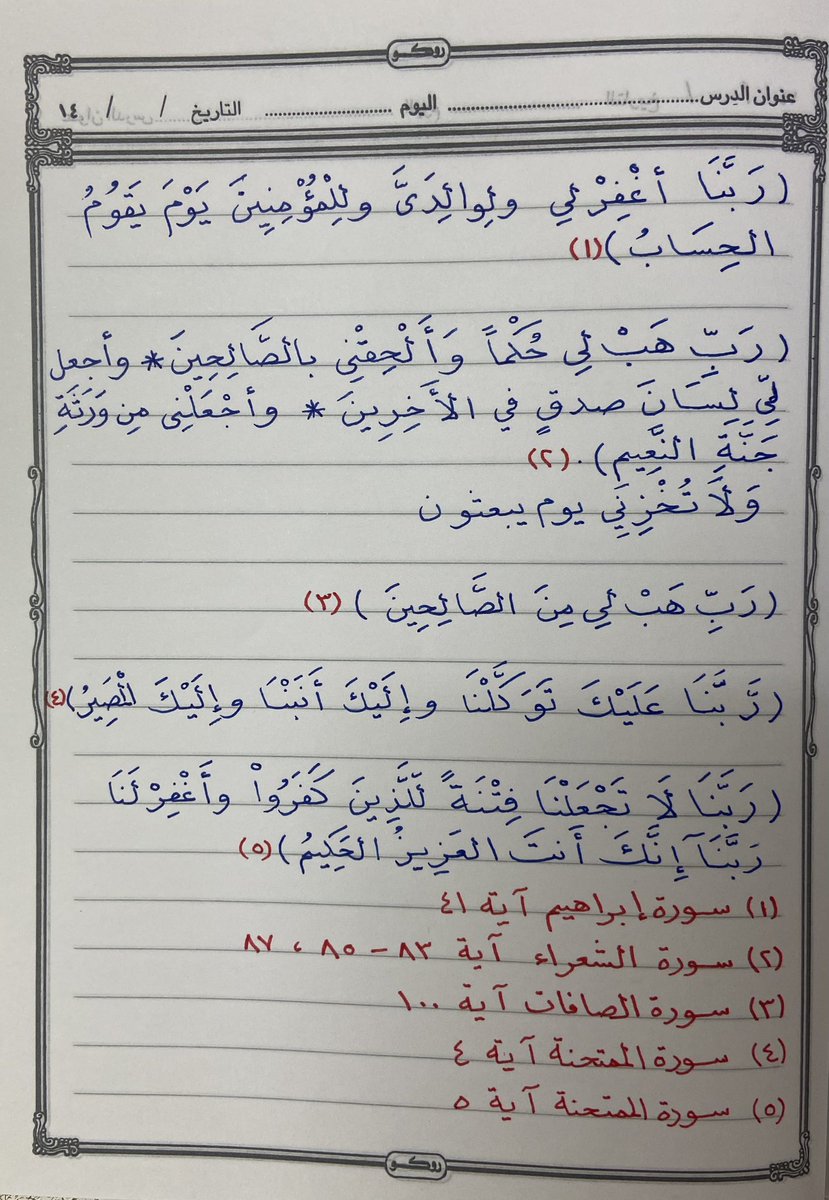 روكو
عنوان الدرس ........ اليوم ........ التاريخ / / ١٤
(رَبَّنَا أغْفِرْ لِي ولِوالِدَىَّ ولِلْمُؤْمِنِينَ يَوْمَ يَقُومُ
الحِسَابُ)(١)
(رَبِّ هَبْ لِي حُكْماً وَأَلْحِقْنِي بالصَّالِحِينَ * وأجعل
لِّي لِسَانَ صدقٍ في الأَخِرِينَ * وأجْعَلْنِى مِن وَرَثَةِ
جَنَّةِ النَّعِيمِ). (٢)
وَلاَ تُخْزِنِي يوم يبعثون
(رَبِّ هَبْ لِي مِنَ الصَّالِحِينَ) (٣)
(رَّبَّنَا عَلَيْكَ تَوَكَّلْنَا وإلَيْكَ أَنَبْنَا وإِلَيْكَ المْصِيرُ)(٤)
(رَبَّنَا لَا تَجْعَلْنَا فِتْنَةً لِّلَّذِينَ كَفَرُواْ وأَغْفِرْ لَنَا
رَبَّنَآ إِنَّكَ أَنتَ العَزِيزُ الحَكِيمُ)(٥)
(١) سورة إبراهيم آية ٤١
(٢) سورة الشعراء آية ٨٣ - ٨٥ ، ٨٧
(٣) سورة الصافات آية ١٠٠
(٤) سورة الممتحنة آية ٤
(٥) سورة الممتحنة آية ٥
روكو